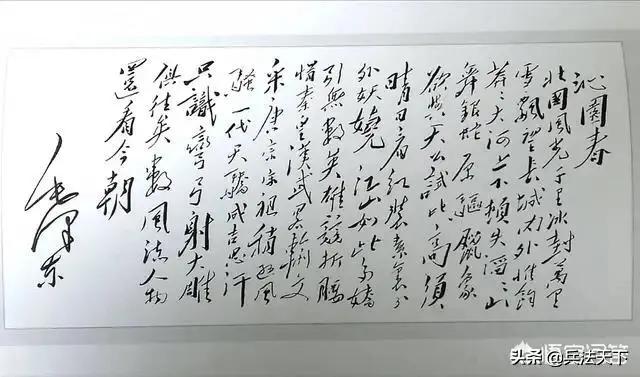 沁園春
北國風光千里冰封萬里
雪飄望長城內外惟餘
莽々大河上下頓失滔々山
舞銀蛇原驅臘象
欲與天公試比高須
晴日看紅裝素裹分
外妖嬈江山如此多嬌
引無數英雄競折腰
惜秦皇漢武略輸文
采唐宗宋祖稍遜風
騷一代天驕成吉思汗
只識彎弓射大雕
俱往矣數風流人物
還看今朝
毛澤東
悟空问答
头条 @兵法天下